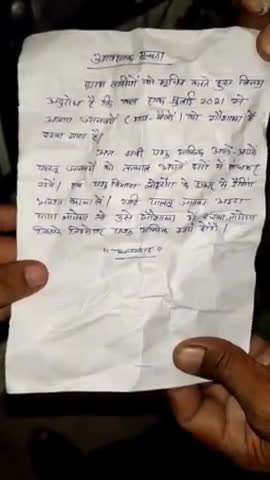 आवश्यक सूचना
ग्राम वासियों को सूचित करते हुए विनम्र
अनुरोध है कि कल एक जुलाई 2021 से
आवारा जानवरों (गाय-बैलों) को गौशाला में
रखा जाना है।
अतः सभी पशु मालिक अपने-अपने
पालतू जानवरों को तत्काल अपने घरों में बांधकर
रखें। एवं पशु विभाग से टैगिंग
अवश्य करा लें। यदि पालतू जानवर आवारा
पाया जायेगा तो उसे गौशाला में रखवा दिया जायेगा
जिसके जिम्मेदार पशु मालिक स्वयं होंगे।
"धन्यवाद"